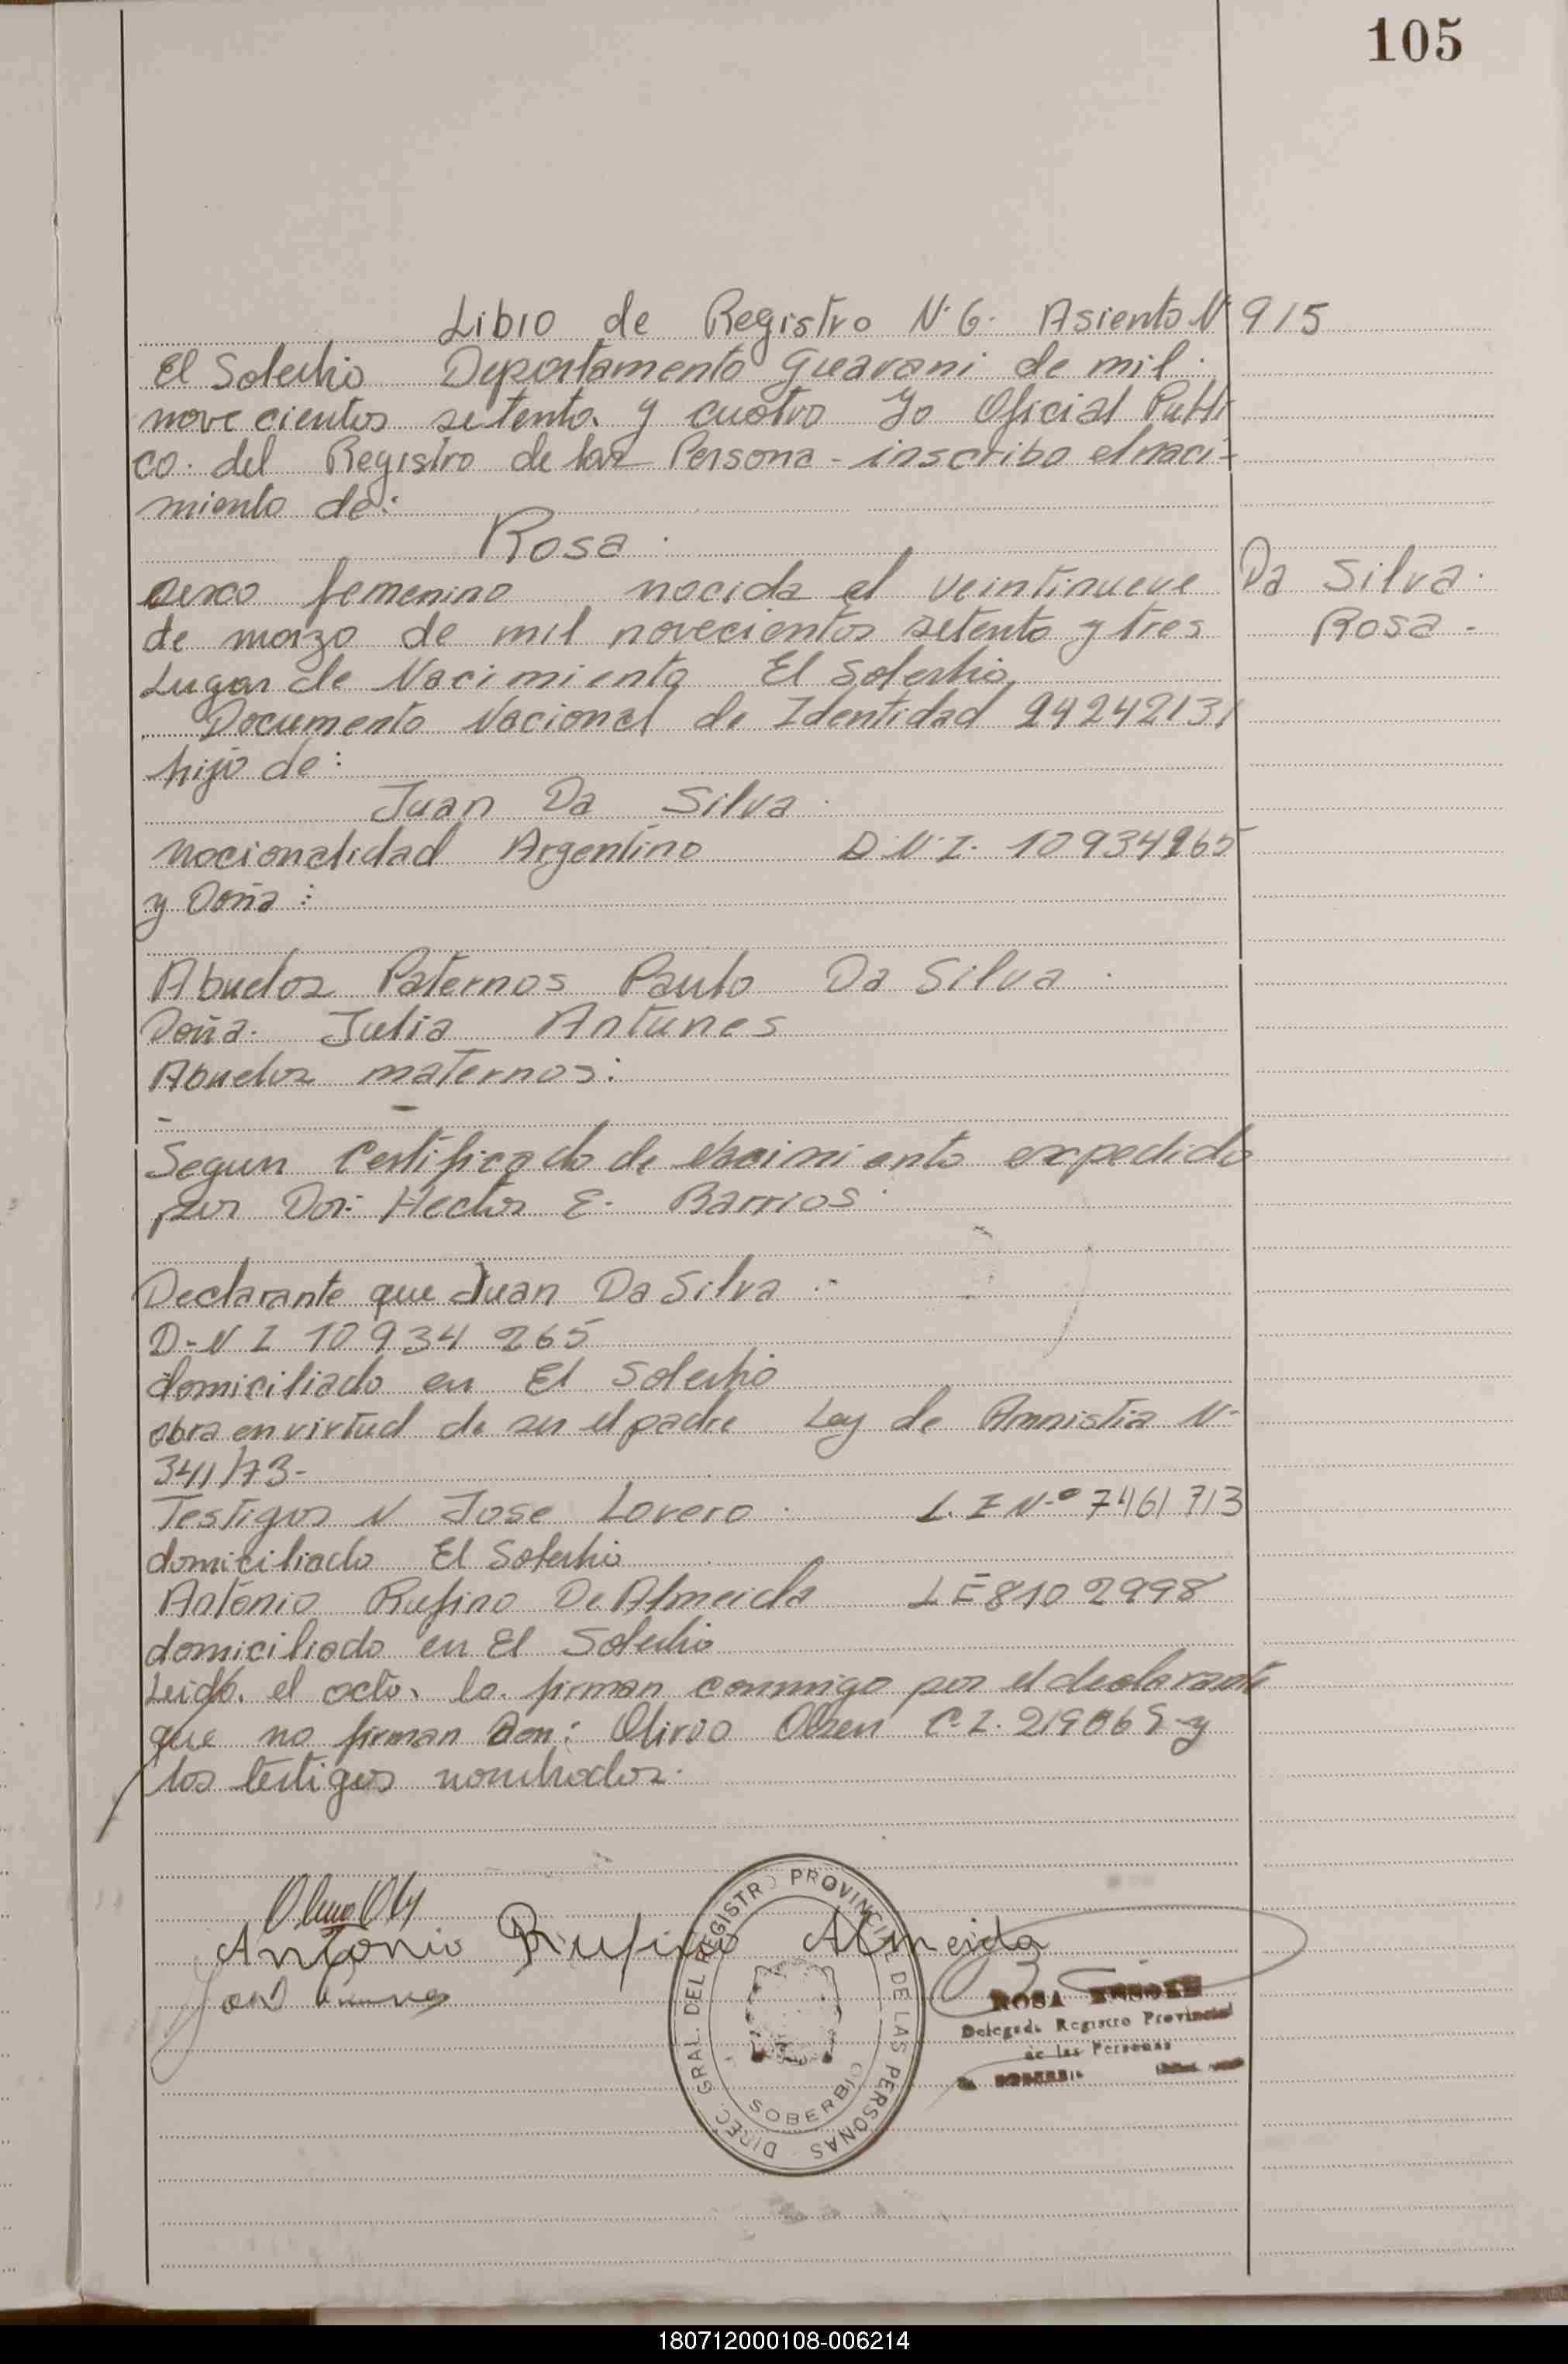 105
Libro de Registro N. 6. Asiento N 915
El Soberbio Departamento Guarani de mil
novecientos setenta y cuatro Yo Oficial Publi
co. del Registro de las Persona - inscribo el naci-
miento de:
Rosa.
sexo femenino nacida el veintinueve
Da Silva.
de marzo de mil novecientos setenta y tres
Rosa -
Lugar de Nacimiento El Soberbio
Documento Nacional de Identidad 24242131
hijo de:
Juan Da Silva.
nacionalidad Argentino D.N.I. 10934265
y Doña:
Abuelos Paternos Paulo Da Silva.
Doña. Julia Antunes
Abuelos maternos:
Segun Certificado de Nacimiento expedido
por Dor: Hector E. Barrios.
Declarante que Juan Da Silva
D-N I 10 934 265
domiciliado en El Soberbio
obra en virtud de su el padre Ley de Amnistia N-
341/73-
Testigos N Jose Lovero. L.E N-º 7461713
domiciliado El Soberbio
Antonio Rufino De Almeida LE 810 2998
domiciliado en El Soberbio
Leido. el acto, lo. firman conmigo por el declarante
que no firman Don: Olivio Olsen C.I. 219069-y
los testigos nombrados.
Antonio Rufino Almeida
DIREC. GRAL. DEL REGISTRO PROVINCIAL DE LAS PERSONAS
SOBERBIO
ROSA
Delegada Registro Provincial
de las Personas
180712000108-006214